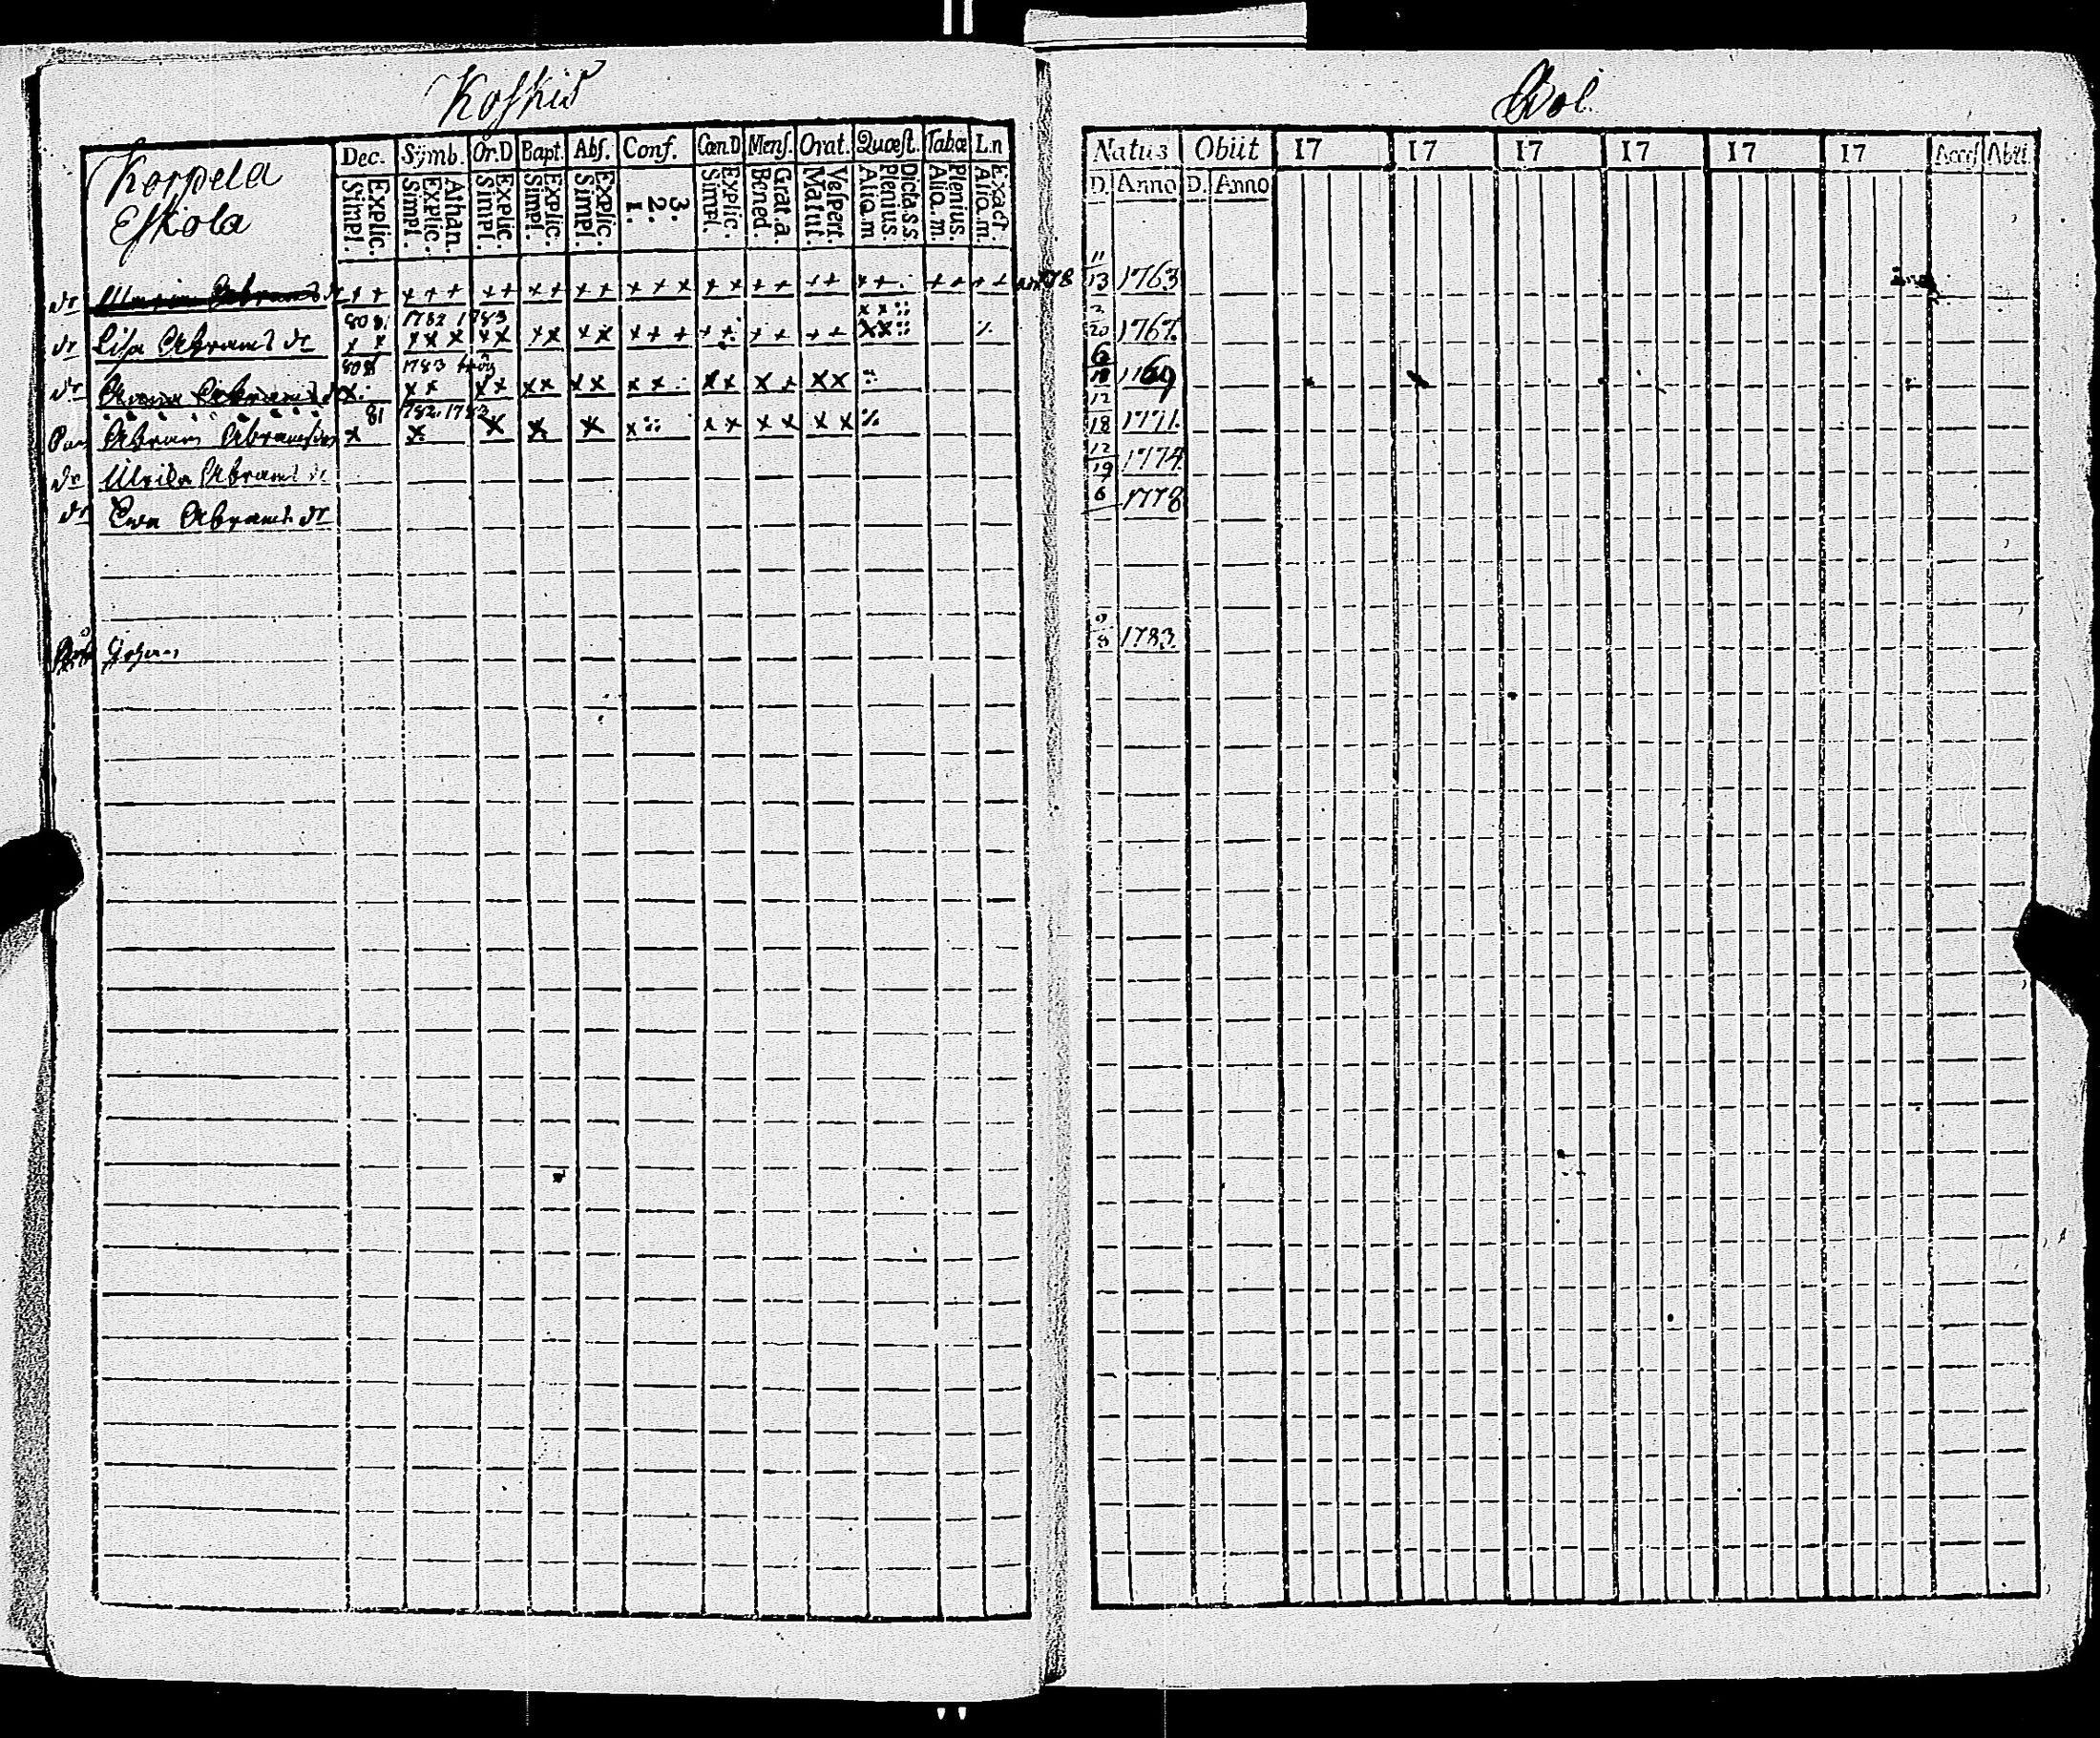 Koskis
Bol.
Korpela
Eskola
Dec. Symb. Or.D Bapt. Abs. Conf. CœnD Mens. Orat. Quæst. Tabœ L.n
Simpl. Explic. Simpl. Explic. Athan. Simpl. Explic. Simpl. Explic. Simpl. Explic. 1. 2. 3. Simpl. Explic. Bened. Grat.a. Matut. Vespert. Aliq.m Plenius. Dicta.s.s. Aliq.m. Plenius. Aliq.m. Exact.
Natus Obiit 17 17 17 17 17 17 Acces Abii
D. Anno D. Anno
dr Abrams dr + + + + + + + + + + + + + + + + + + + + + + + + + 78 11/13 1763
80 81 1782 1783
dr Lisa Abrams dr x x x x x x x x x x x + + + + + + + + + x x 2/20 1767.
80 81 1783
dr Abrams dr x x x x x x x x x x x x x x x x x 1769
81 1782. 1783
Abram Abramsson x x x x x x x x x x x x 12/18 1771.
dr Ulrika Abrams dr 12/19 1774.
dr Eva Abrams dr 6 1778
Johan 8 1783.